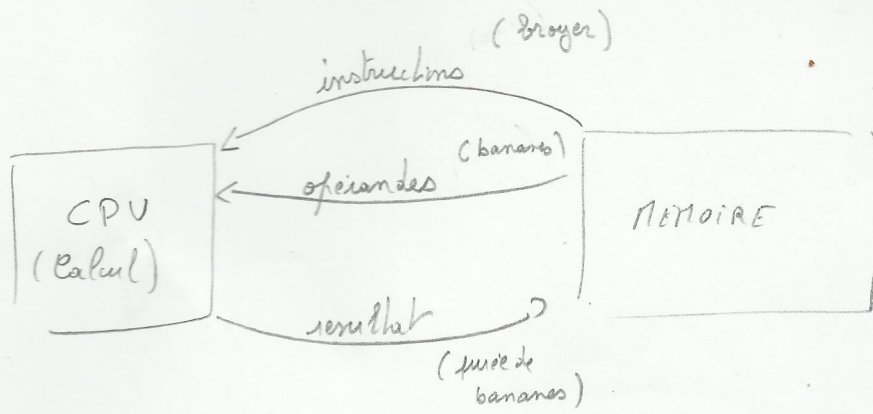 (broyer)
instructions
(bananes)
opérandes
CPU
(Calcul)
MEMOIRE
resultat
(purée de
bananes)